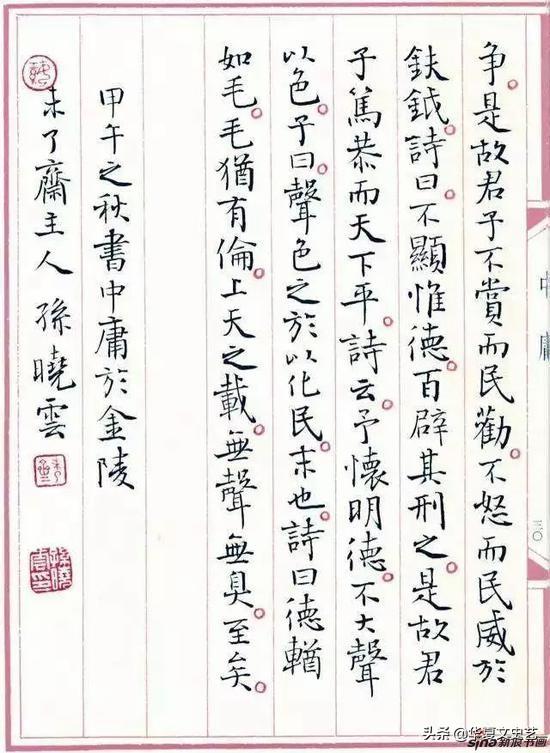 中庸
三〇
争。是故君子不賞而民勸。不怒而民威於
鈇鉞。詩曰。不顯惟德。百辟其刑之。是故君
子篤恭而天下平。詩云。予懷明德。不大聲
以色。子曰。聲色之於以化民。末也。詩曰。德輶
如毛。毛猶有倫。上天之載。無聲無臭。至矣。
甲午之秋書中庸於金陵
未了齋主人 孫曉雲
头条@华夏文史艺
sina新浪书画